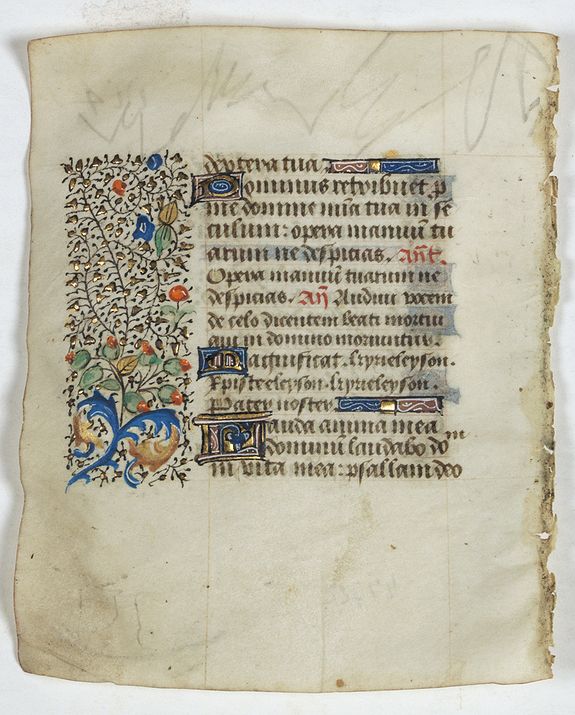 dextera tua.
Dominus retribuet p
me domine mia tua in se
culum: opera manuū tu
arum ne despicias. Añt.
Opera manuū tuarum ne
despicias. Añ Audivi vocem
de celo dicentem beati mortui
qui in domino moriuntur.
Magnificat. kyrieleyson.
Xpisteeleyson. kyrieleyson.
Pater noster
Lauda anima mea
dominū laudabo dom
in vita mea: psallam deo